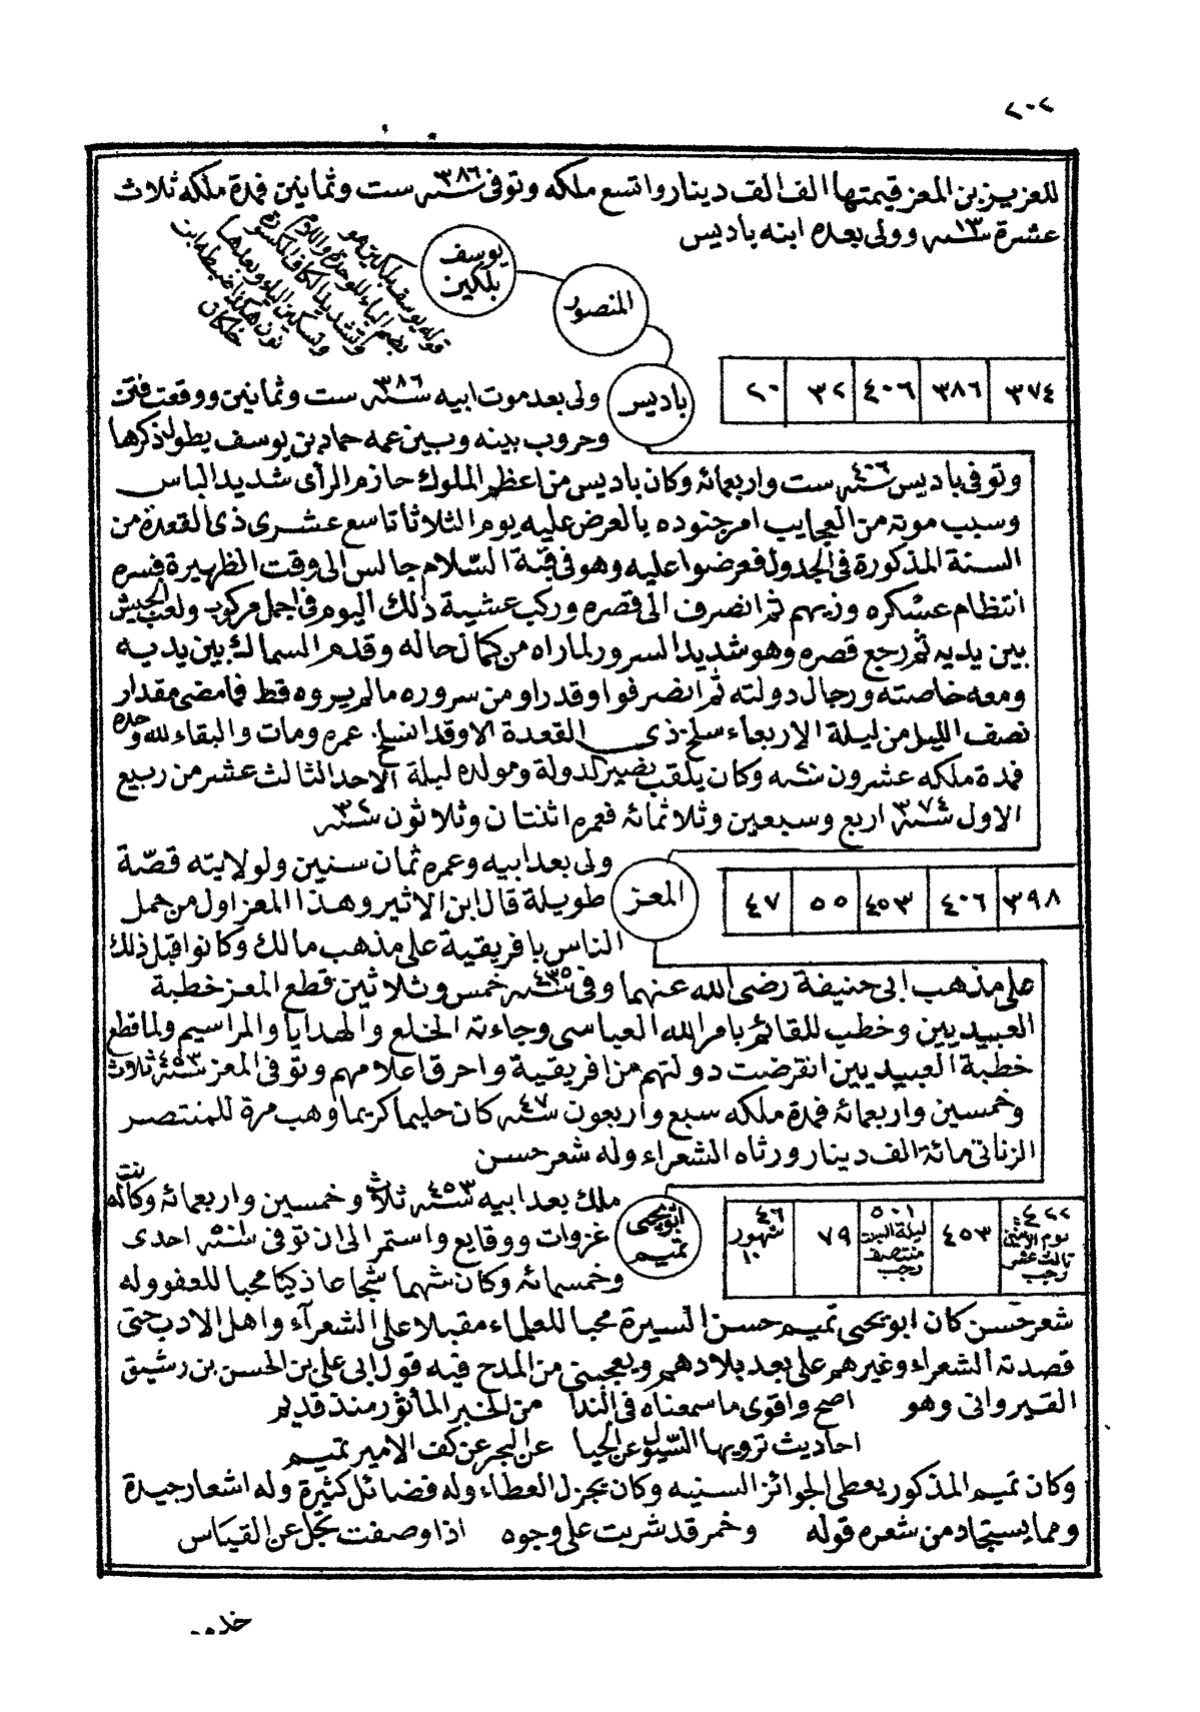 ٢٠٢
للعزيز بن المعز قيمتها الف الف دينار واتسع ملكه وتوفى سنة ٣٨٦ ست وثمانين فمدة ملكه ثلاث
عشرة سنه ١٣ وولى بعده ابنه باديس
يوسف
بلكين
قوله يوسف بلكين هو
بضم الباء الموحدة واللام
وتشديد الكاف المكسورة
وتسكين الياء وبعدها
نون هكذا ضبطه ابن
خلكان
المنصور
٣٧٤ ٣٨٦ ٤٠٦ ٣٢ ٢٠
باديس
ولى بعد موت ابيه سنه ٣٨٦ ست وثمانين ووقعت فتن
وحروب بينه وبين عمه حماد بن يوسف يطول ذكرها
وتوفى باديس سنه ٤٠٦ ست واربعمائه وكان باديس من اعظم الملوك حازم الرأى شديد الباس
وسبب موته من العجايب امر جنوده بالعرض عليه يوم الثلاثا تاسع عشرى ذى القعدة من
السنة المذكورة فى الجدول فعرضوا عليه وهو فى قبة السلام جالس الى وقت الظهيرة فسره
انتظام عسكره وزيهم ثم انصرف الى قصره وركب عشية ذلك اليوم فى اجمل مركوب ولعب الجيش
بين يديه ثم رجع قصره وهو شديد السرور لما راه من كمال حاله وقدم السماك بين يديه
ومعه خاصته ورجال دولته ثم انصرفوا وقد راو من سروره ما لم يروه قط فما مضى مقدار
نصف الليل من ليلة الاربعاء سلخ ذى القعدة الا وقد انسلخ عمره ومات والبقاء لله وحده
فمدة ملكه عشرون سنه ٢٠ وكان يلقب بنصير الدولة ومولده ليلة الاحد الثالث عشر من ربيع
الاول سنه ٣٧٤ اربع وسبعين وثلاثمائه فعمره اثنتان وثلاثون سنه ٣٢
٣٩٨ ٤٠٦ ٤٥٣ ٥٥ ٤٧
المعز
ولى بعد ابيه وعمره ثمان سنين ولولايته قصّة
طويلة قال ابن الاثير وهذا المعز اول من حمل
الناس بافريقية على مذهب مالك وكانوا قبل ذلك
على مذهب ابى حنيفة رضى الله عنهما وفى سنه ٤٣٥ خمس وثلاثين قطع المعز خطبة
العبيديين وخطب للقائم بامر الله العباسى وجاءته الخلع والهدايا والمراسيم ولما قطع
خطبة العبيديين انقرضت دولتهم من افريقية واحرق اعلامهم وتوفى المعز سنه ٤٥٣ ثلاث
وخمسين واربعمائه فمدة ملكه سبع واربعون سنه ٤٧ كان حليما كريما وهب مرة للمنتصر
الزناتى مائة الف دينار ورثاه الشعراء وله شعر حسن
٤٢٢ يوم الاثنين ثالث عشر رجب ٤٥٣ ٥٠١ ليلة السبت منتصف رجب ٧٩ ٤٦ شهور ١٠
ابو يحيى
تميم
ملك بعد ابيه سنه ٤٥٣ ثلاث وخمسين واربعمائه وكانت له
غزوات ووقايع واستمر الى ان توفى سنه ٥٠١ احدى
وخمسمائه وكان شهما شجاعا ذكيا محبا للعفو وله
شعر حسن كان ابو يحيى تميم حسن السيرة محبا للعلماء مقبلا على الشعرآء واهل الادب حتى
قصدته الشعراء وغيرهم على بعد بلادهم ويعجبنى من المدح فيه قول ابى على بن الحسن بن رشيق
القيروانى وهو اصح واقوى ما سمعناه فى الندا من الخبر المأثور منذ قديم
احاديث ترويها السّيول عن الحيا عن البحر عن كف الامير تميم
وكان تميم المذكور يعطى الجوائز السنيه وكان يجزل العطاء وله فضائل كثيرة وله اشعار جيدة
ومما يستجاد من شعره قوله وخمر قد شربت على وجوه اذا وصفت تجل عن القياس